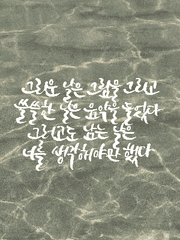 그리운 날은 그림을 그리고
쓸쓸한 날은 음악을 들었다
그리고도 남는 날은
너를 생각해야만 했다